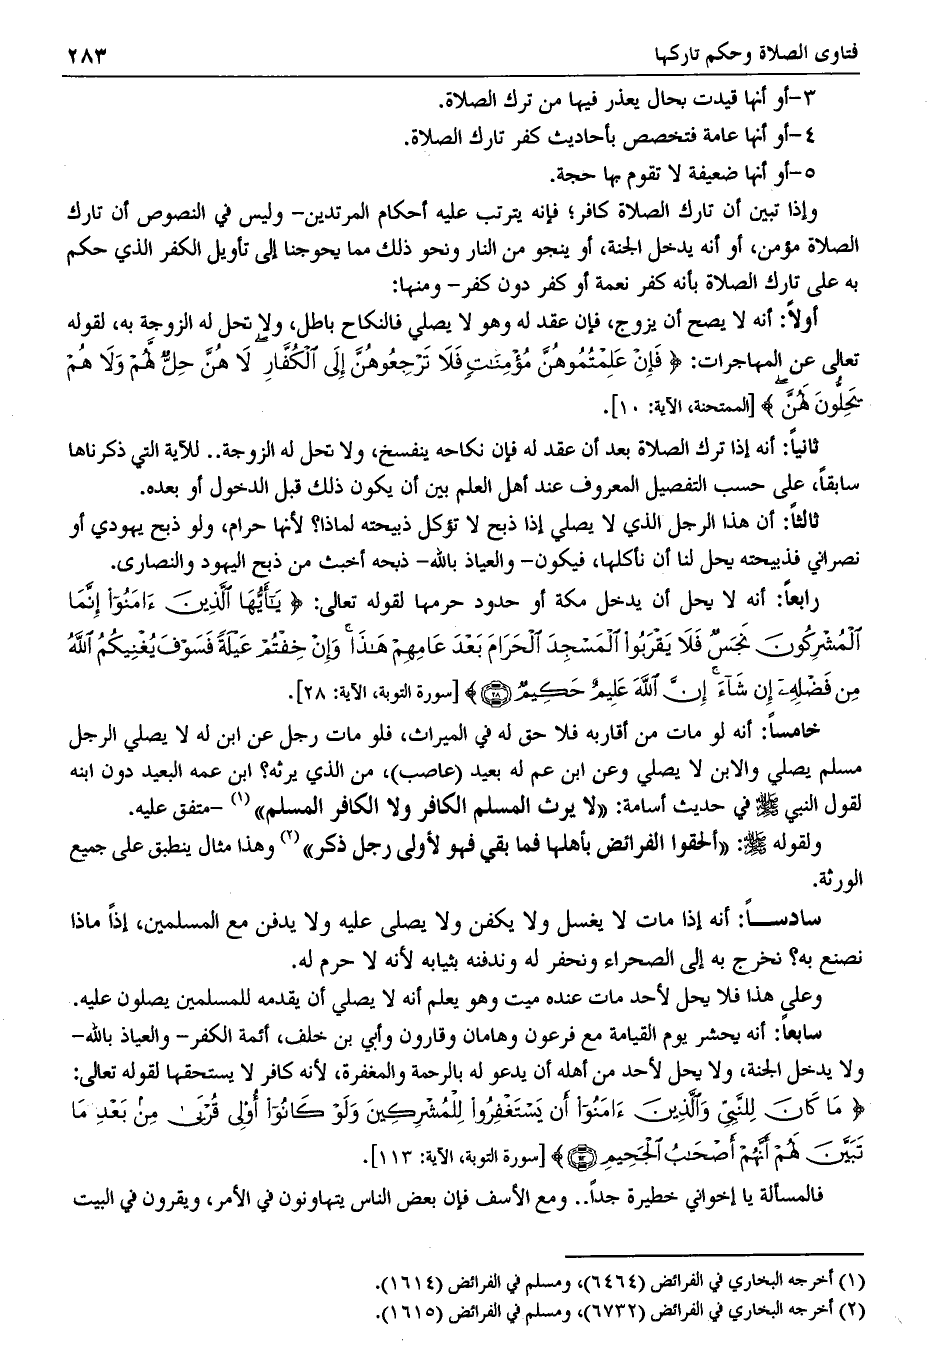 فتاوى الصلاة وحكم تاركها
٢٨٣
٣-أو أنها قيدت بحال يعذر فيها من ترك الصلاة.
٤-أو أنها عامة فتخصص بأحاديث كفر تارك الصلاة.
٥-أو أنها ضعيفة لا تقوم بها حجة.
وإذا تبين أن تارك الصلاة كافر؛ فإنه يترتب عليه أحكام المرتدين- وليس في النصوص أن تارك
الصلاة مؤمن، أو أنه يدخل الجنة، أو ينجو من النار ونحو ذلك مما يحوجنا إلى تأويل الكفر الذي حكم
به على تارك الصلاة بأنه كفر نعمة أو كفر دون كفر- ومنها:
أولاً: أنه لا يصح أن يزوج، فإن عقد له وهو لا يصلي فالنكاح باطل، ولا تحل له الزوجة به، لقوله
تعالى عن المهاجرات: ﴿ فَإِنْ عَلِمْتُمُوهُنَّ مُؤْمِنَٰتٍ فَلَا تَرْجِعُوهُنَّ إِلَى ٱلْكُفَّارِ ۖ لَا هُنَّ حِلٌّ لَّهُمْ وَلَا هُمْ
يَحِلُّونَ لَهُنَّ ۖ ﴾ [الممتحنة، الآية: ١٠].
ثانياً: أنه إذا ترك الصلاة بعد أن عقد له فإن نكاحه ينفسخ، ولا تحل له الزوجة.. للآية التي ذكرناها
سابقاً، على حسب التفصيل المعروف عند أهل العلم بين أن يكون ذلك قبل الدخول أو بعده.
ثالثاً: أن هذا الرجل الذي لا يصلي إذا ذبح لا تؤكل ذبيحته لماذا؟ لأنها حرام، ولو ذبح يهودي أو
نصراني فذبيحته يحل لنا أن نأكلها، فيكون- والعياذ بالله- ذبحه أخبث من ذبح اليهود والنصارى.
رابعاً: أنه لا يحل أن يدخل مكة أو حدود حرمها لقوله تعالى: ﴿ يَٰٓأَيُّهَا ٱلَّذِينَ ءَامَنُوٓا۟ إِنَّمَا
ٱلْمُشْرِكُونَ نَجَسٌ فَلَا يَقْرَبُوا۟ ٱلْمَسْجِدَ ٱلْحَرَامَ بَعْدَ عَامِهِمْ هَٰذَا ۚ وَإِنْ خِفْتُمْ عَيْلَةً فَسَوْفَ يُغْنِيكُمُ ٱللَّهُ
مِن فَضْلِهِۦٓ إِن شَآءَ ۚ إِنَّ ٱللَّهَ عَلِيمٌ حَكِيمٌ ﴿٢٨﴾ ﴾ [سورة التوبة، الآية: ٢٨].
خامساً: أنه لو مات من أقاربه فلا حق له في الميراث، فلو مات رجل عن ابن له لا يصلي الرجل
مسلم يصلي والابن لا يصلي وعن ابن عم له بعيد (عاصب)، من الذي يرثه؟ ابن عمه البعيد دون ابنه
لقول النبي ﷺ في حديث أسامة: «لا يرث المسلم الكافر ولا الكافر المسلم» (١) -متفق عليه.
ولقوله ﷺ: «ألحقوا الفرائض بأهلها فما بقي فهو لأولى رجل ذكر» (٢) وهذا مثال ينطبق على جميع
الورثة.
سادســاً: أنه إذا مات لا يغسل ولا يكفن ولا يصلى عليه ولا يدفن مع المسلمين، إذاً ماذا
نصنع به؟ نخرج به إلى الصحراء ونحفر له وندفنه بثيابه لأنه لا حرم له.
وعلى هذا فلا يحل لأحد مات عنده ميت وهو يعلم أنه لا يصلي أن يقدمه للمسلمين يصلون عليه.
سابعاً: أنه يحشر يوم القيامة مع فرعون وهامان وقارون وأبي بن خلف، أئمة الكفر- والعياذ بالله-
ولا يدخل الجنة، ولا يحل لأحد من أهله أن يدعو له بالرحمة والمغفرة، لأنه كافر لا يستحقها لقوله تعالى:
﴿ مَا كَانَ لِلنَّبِيِّ وَٱلَّذِينَ ءَامَنُوٓا۟ أَن يَسْتَغْفِرُوا۟ لِلْمُشْرِكِينَ وَلَوْ كَانُوٓا۟ أُو۟لِى قُرْبَىٰ مِنۢ بَعْدِ مَا
تَبَيَّنَ لَهُمْ أَنَّهُمْ أَصْحَٰبُ ٱلْجَحِيمِ ﴾ [سورة التوبة، الآية: ١١٣].
فالمسألة يا إخواني خطيرة جداً.. ومع الأسف فإن بعض الناس يتهاونون في الأمر، ويقرون في البيت
(١) أخرجه البخاري في الفرائض (٦٤٦٤)، ومسلم في الفرائض (١٦١٤).
(٢) أخرجه البخاري في الفرائض (٦٧٣٢)، ومسلم في الفرائض (١٦١٥).